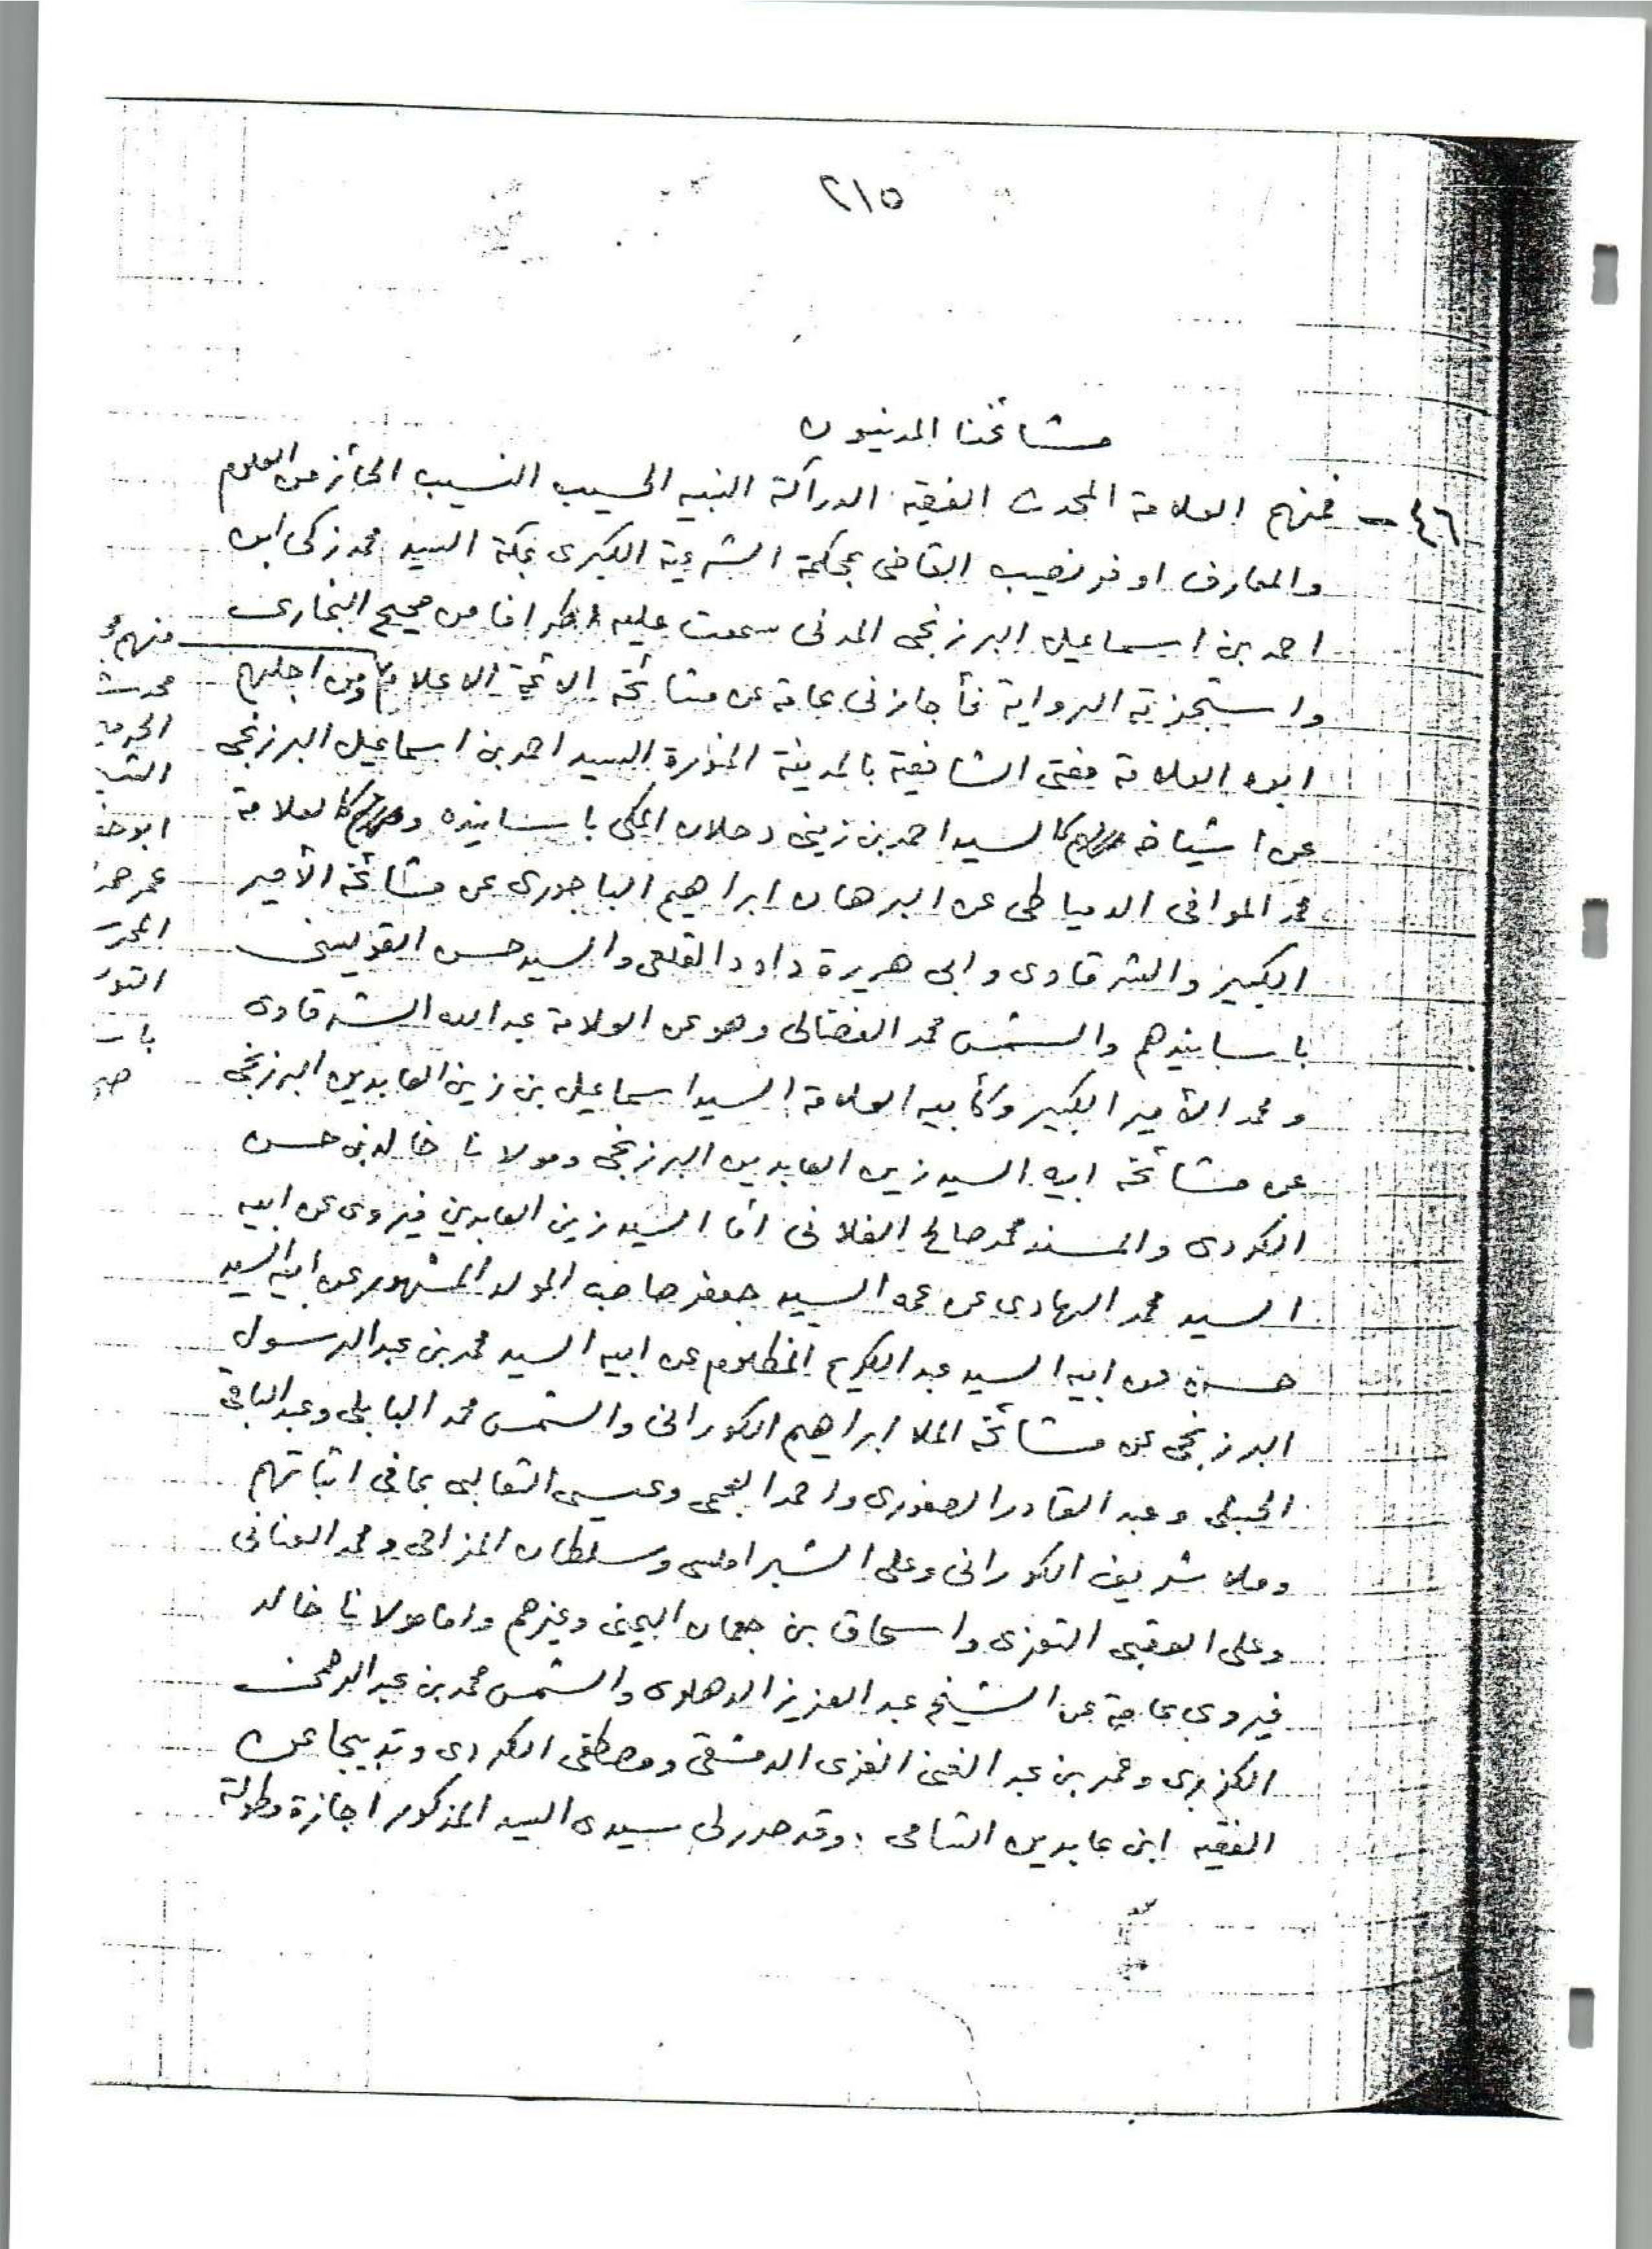 ٢١٥
مشائخنا المدنيون
٤٦ - فمنهم العلامة المحدث الفقيه الدراكة النبيه الحسيب النسيب الحائز من العلوم
والمعارف اوفر نصيب القاضى بمحكمة الشرعية الكبرى بمكة السيد محمد زكى ابن
احمد بن اسماعيل البرزنجى المدنى سمعت عليه اطرافا من صحيح البخارى
واستجزته الرواية فأجازنى عامة عن مشائخه الائمة الاعلام ومن اجلهم
ابوه العلامة مفتى الشافعية بالمدينة المنورة السيد احمد بن اسماعيل البرزنجى
عن اشياخه كالسيد احمد بن زينى دحلان المكى باسانيده وكالعلامة
محمد الموافى الدمياطى عن البرهان ابراهيم الباجورى عن مشائخه الأمير
الكبير والشرقاوى وابى هريرة داود القلعى والسيد حسن القويسنى
باسانيدهم والشمس محمد الفضالى وهو عن العلامة عبد الله الشرقاوى
ومحمد الأمير الكبير وكأبيه العلامة السيد اسماعيل بن زين العابدين البرزنجى
عن مشائخه ابيه السيد زين العابدين البرزنجى ومولانا خالد بن حسن
الكردى والمسند محمد صالح الفلانى أما السيد زين العابدين فيروى عن ابيه
السيد محمد الهادى عن عمه السيد جعفر صاحب المولد المشهور عن ابيه السيد
حسن عن ابيه السيد عبد الكريم المظلوم عن ابيه السيد محمد بن عبد الرسول
البرزنجى عن مشائخه الملا ابراهيم الكورانى والشمس محمد البابلى وعبد الباقى
الحنبلى وعبد القادر الصفورى واحمد العجمى وعيسى الثعالبى بما فى اثباتهم
وملا شريف الكورانى وعلى الشبراملسى وسلطان المزاحى ومحمد العنانى
وعلى العقيبى التعزى واسحاق بن جعمان اليمنى وغيرهم واما مولانا خالد
فيروى عامة عن الشيخ عبد العزيز الدهلوى والشمس محمد بن عبد الرحمن
الكزبرى وعمر بن عبد الغنى الغزى الدمشقى ومصطفى الكردى وتدبيجا عن
الفقيه ابن عابدين الشامى . وقد صدر لى سيدى السيد المذكور اجازة مطولة
منهم
محدث
الحرمين
ابو حفص
عمر حمد
المحر
التو
با